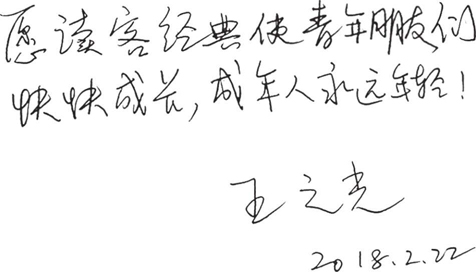 愿读客经典使青年朋友们
快快成长，成年人永远年轻！
王之光
2018.2.22